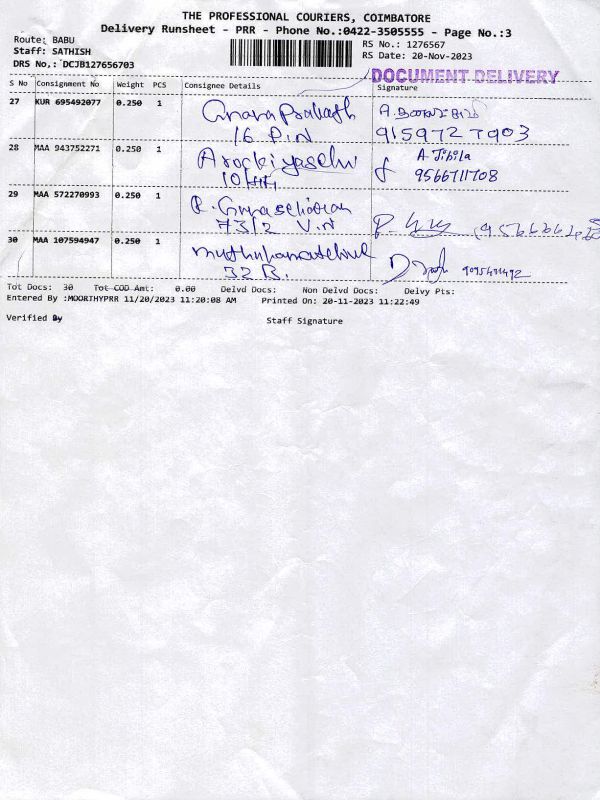 THE PROFESSIONAL COURIERS, COIMBATORE
Delivery Runsheet - PRR - Phone No.:0422-3505555 - Page No.:3
Route: BABU
RS No.: 1276567
Staff: SATHISH
RS Date: 20-Nov-2023
DRS No,: DCJB127656703
DOCUMENT DELIVERY
S No Consignment No Weight PCS Consignee Details Signature
27 KUR 695492077 0.250 1
16 P.N 9159727903
28 MAA 943752271 0.250 1 A Jibila
9566711708
29 MAA 572270993 0.250 1
73/2 V.N
30 MAA 107594947 0.250 1
32 B.
Tot Docs: 30 Tot COD Amt: 0.00 Delvd Docs: Non Delvd Docs: Delvy Pts:
Entered By :MOORTHYPRR 11/20/2023 11:20:08 AM Printed On: 20-11-2023 11:22:49
Verified By Staff Signature